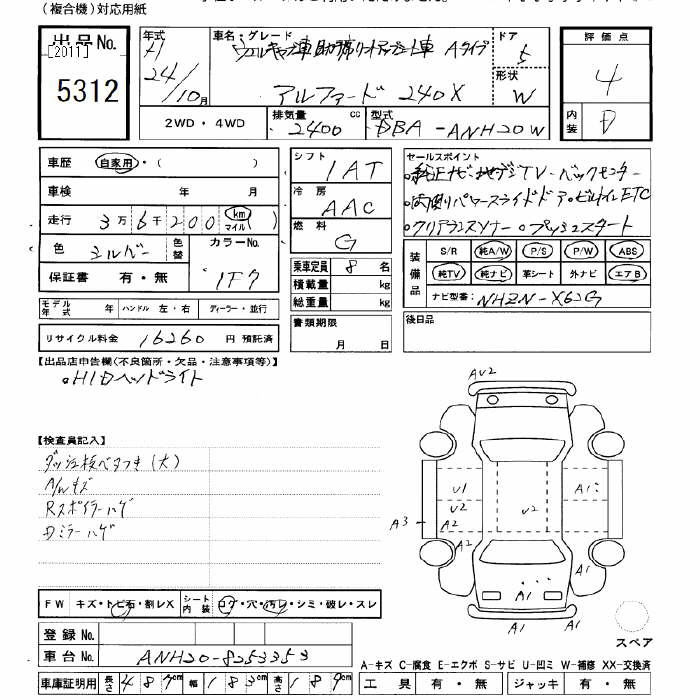 (複合機)対応用紙
出品No.
[2011]
5312
年式
H
24/10月
車名・グレード
ウェルキャブ車 助手席リフトアップシート車 Aタイプ
アルファード 240X
ドア
5
形状
W
評価点
4
内装
D
2WD・4WD
排気量
2400
cc
型式
DBA-ANH20W
車歴 自家用・( )
車検 年 月
走行 3万6千200 (km マイル)
色 シルバー 色替 カラーNo. 1F7
保証書 有・無
モデル年式 年 ハンドル 左・右 ディーラー・並行
リサイクル料金 16260 円 預託済
シフト
IAT
冷房
AAC
燃料
G
乗車定員 8 名
積載量 kg
総重量 kg
書類期限
月 日
セールスポイント
純正ナビ・地デジTV・バックモニター
両側パワースライドドア・ビルトインETC
クリアランスソナー プッシュスタート
装備品
S/R 純A/W P/S P/W ABS
純TV 純ナビ 革シート 外ナビ エアB
ナビ型番: NHZN-X62G
後日品
【出品店申告欄(不良箇所・欠品・注意事項等)】
HIDヘッドライト
【検査員記入】
ダッシュ板ベタつき(大)
A/Wキズ
Rスポイラーハゲ
Dミラーハゲ
AU2
U1
U2
A2
A3
A2
U2
A1
A1
A1
A1
A1
スペア
FW キズ・トビ石・割レX シート内装 コゲ・穴・汚レ・シミ・破レ・スレ
登録No.
車台No. ANH20-8253353
車庫証明用 長さ 487cm 幅 183cm 高さ 189cm
A-キズ C-腐食 E-エクボ S-サビ U-凹ミ W-補修 XX-交換済
工具 有・無 ジャッキ 有・無